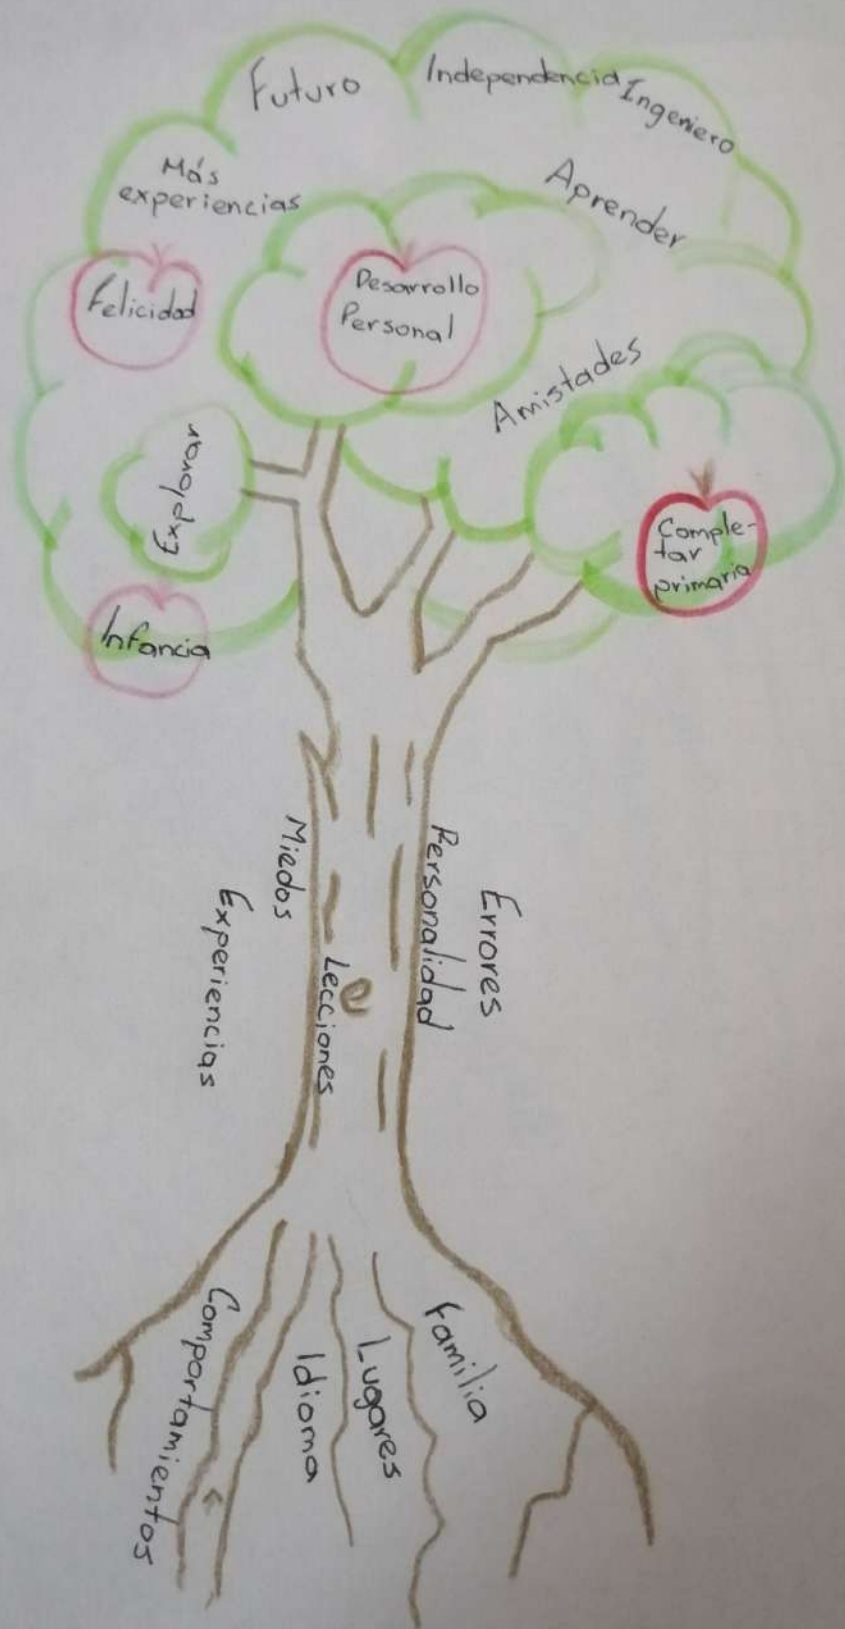 Futuro
Independencia
Ingeniero
Más
experiencias
Aprender
Felicidad
Desarrollo
Personal
Amistades
Explorar
Comple-
tar
primaria
Infancia
Miedos
Personalidad
Errores
Experiencias
Lecciones
Comportamientos
Idioma
Lugares
Familia